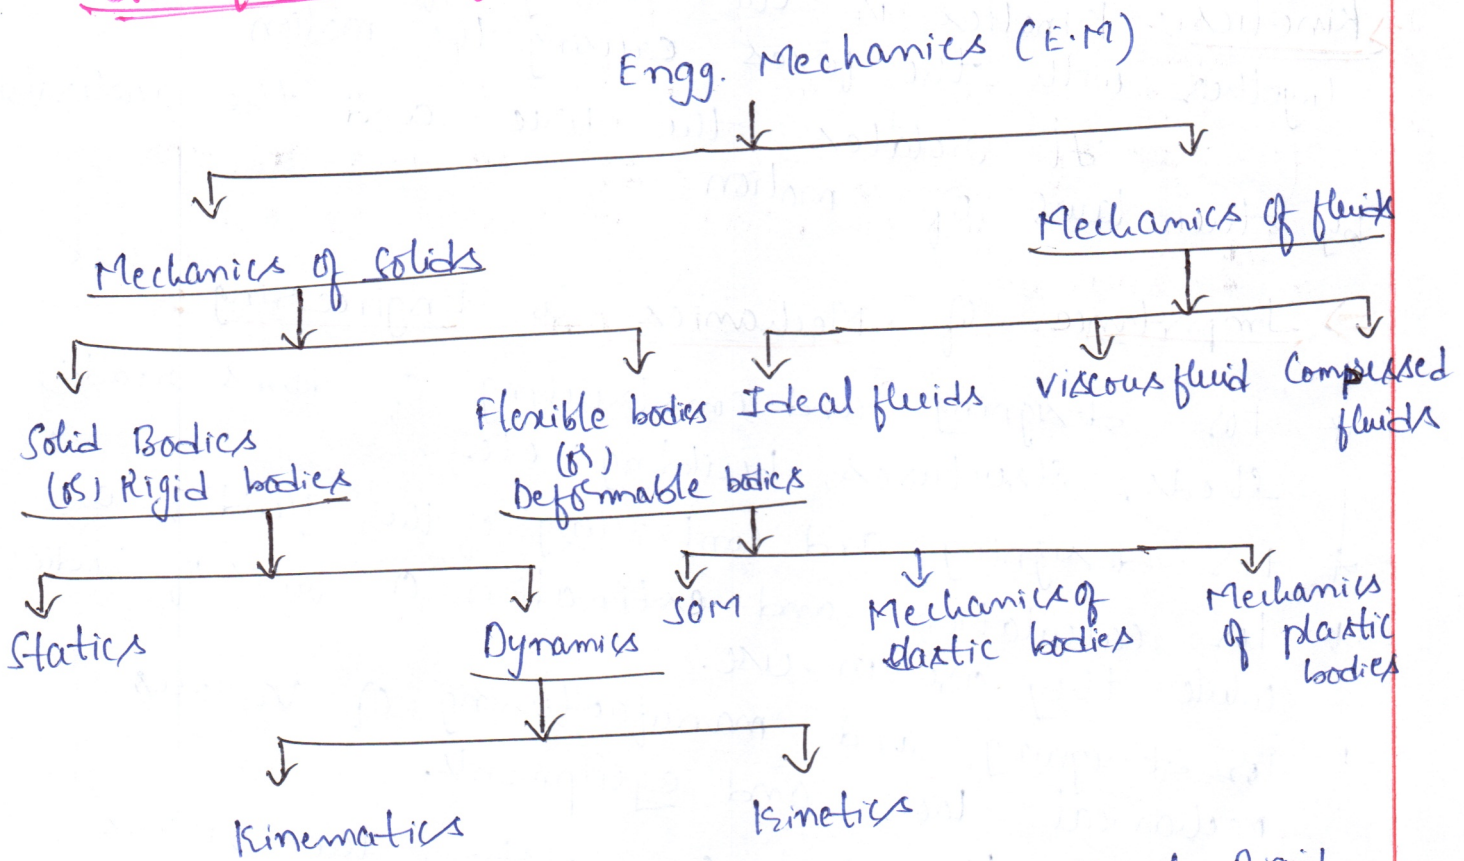 Engg. Mechanics (E.M)
Mechanics of solids
Mechanics of fluids
Solid Bodies
(or) Rigid bodies
Flexible bodies
(or)
Deformable bodies
Ideal fluids
Viscous fluid
Compressed
fluids
Statics
Dynamics
SOM
Mechanics of
elastic bodies
Mechanics
of plastic
bodies
Kinematics
Kinetics